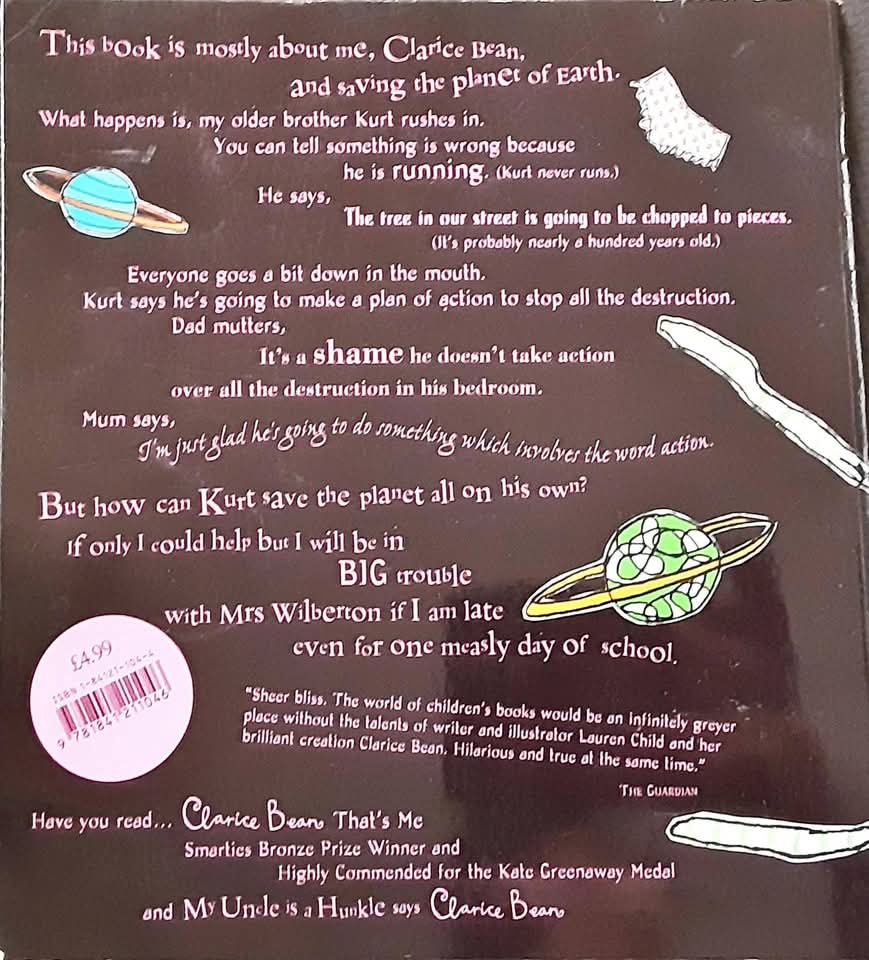 This book is mostly about me, Clarice Bean,
and saving the planet of Earth.
What happens is, my older brother Kurt rushes in.
You can tell something is wrong because
he is running. (Kurt never runs.)
He says,
The tree in our street is going to be chopped to pieces.
(It's probably nearly a hundred years old.)
Everyone goes a bit down in the mouth.
Kurt says he's going to make a plan of action to stop all the destruction.
Dad mutters,
It's a shame he doesn't take action
over all the destruction in his bedroom.
Mum says,
I'm just glad he's going to do something which involves the word action.
But how can Kurt save the planet all on his own?
If only I could help but I will be in
BIG trouble
with Mrs Wilberton if I am late
even for one measly day of school.
£4.99
ISBN 1-84121-104-4
9 781841 211046
"Sheer bliss. The world of children's books would be an infinitely greyer
place without the talents of writer and illustrator Lauren Child and her
brilliant creation Clarice Bean. Hilarious and true at the same time."
THE GUARDIAN
Have you read... Clarice Bean, That's Me
Smarties Bronze Prize Winner and
Highly Commended for the Kate Greenaway Medal
and My Uncle is a Hunkle says Clarice Bean